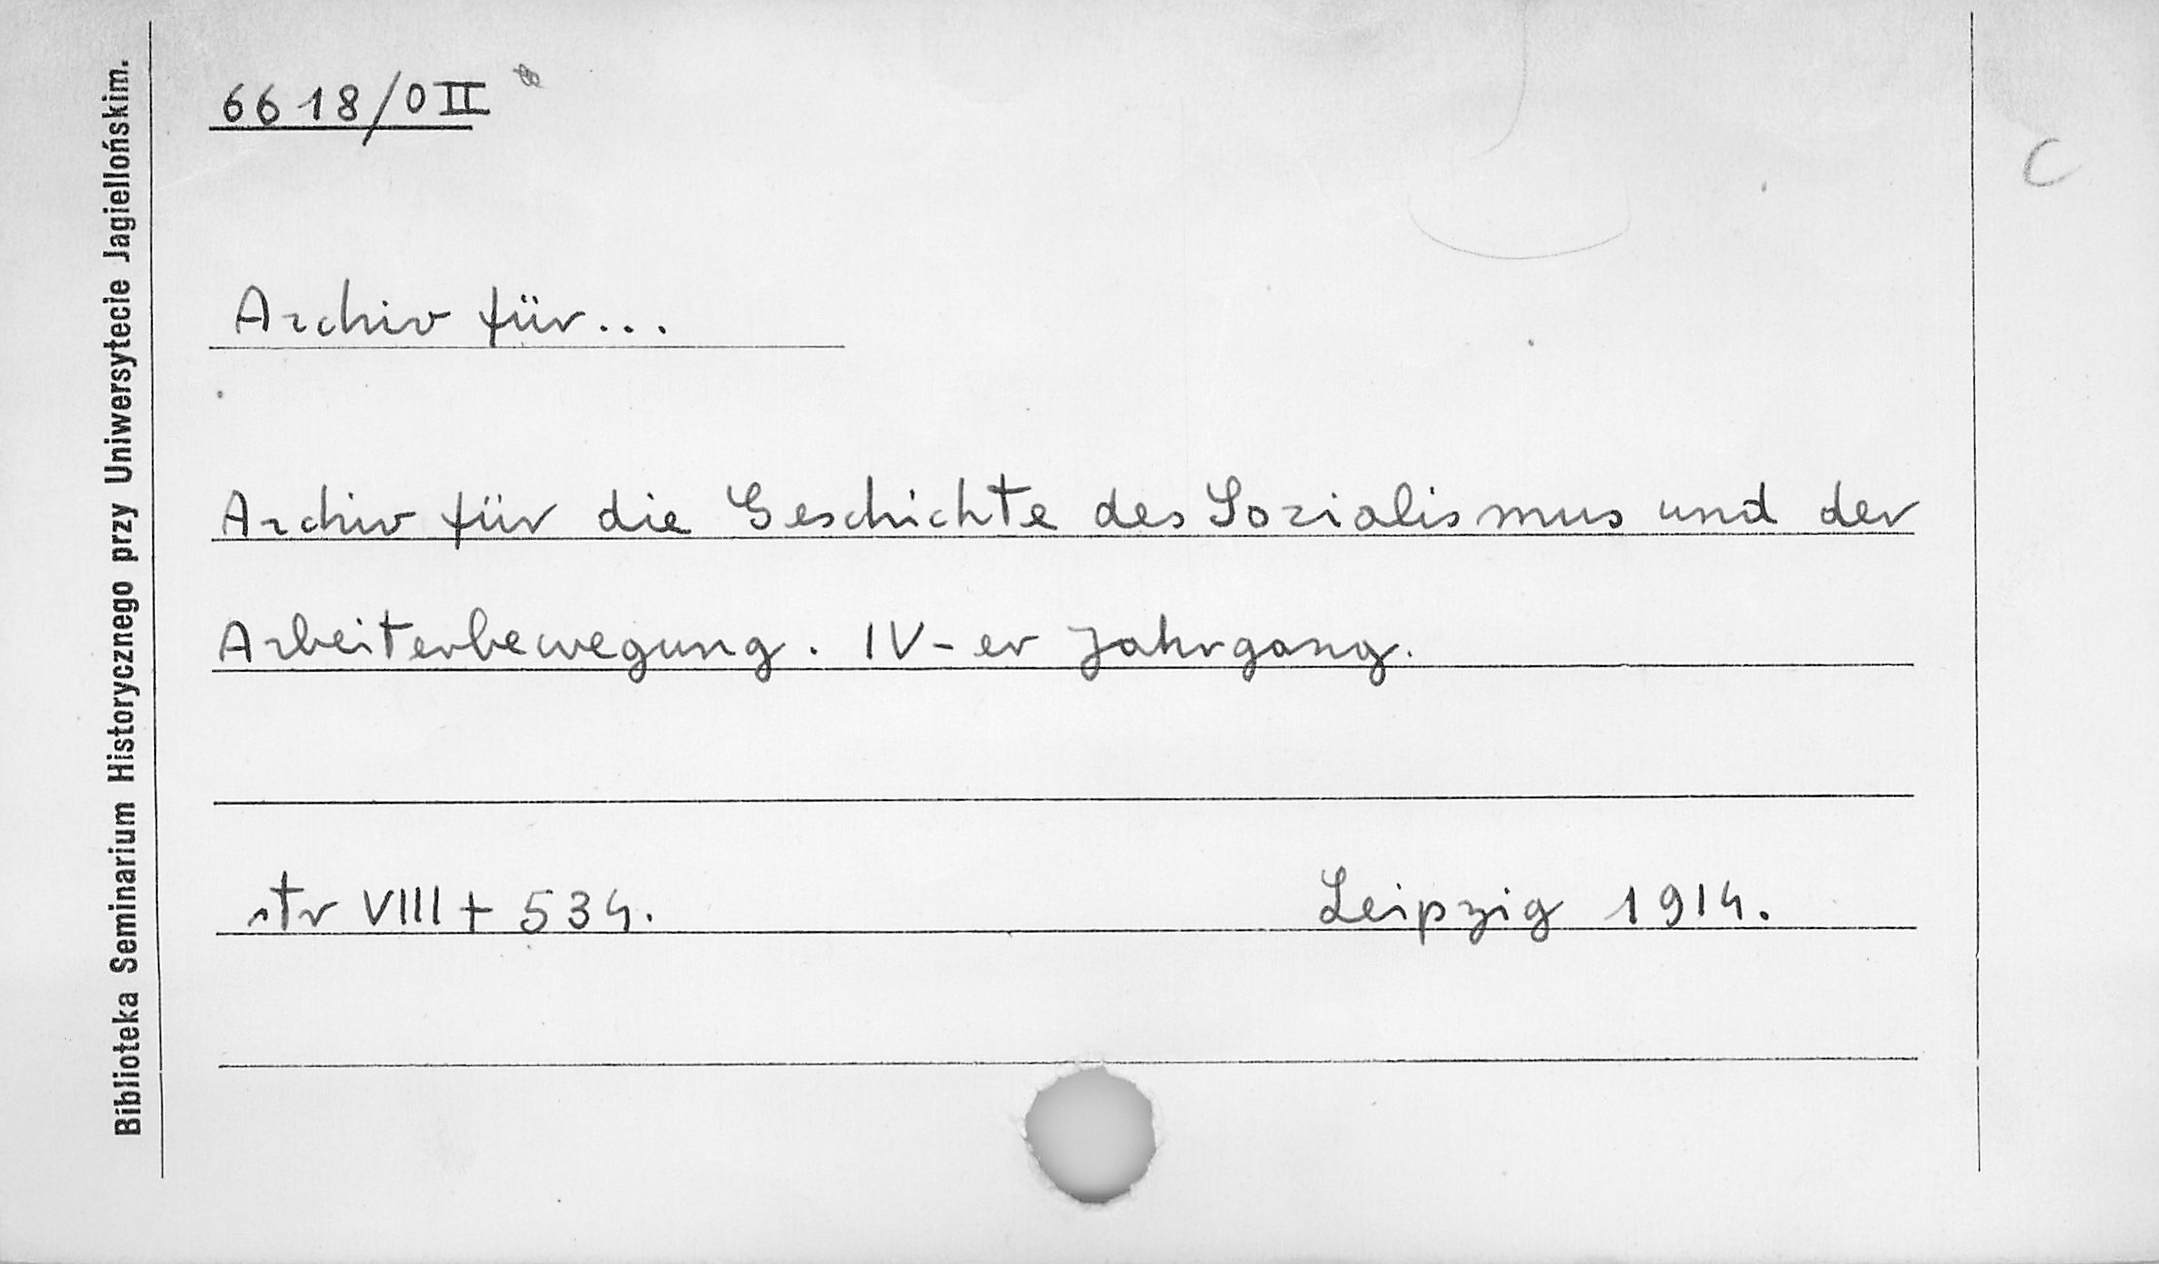 Biblioteka Seminarium Historycznego przy Uniwersytecie Jagiellońskim.
6618/0 II
C
Archiv für...
Archiv für die Geschichte des Sozialismus und der
Arbeiterbewegung. IV-er Jahrgang.
str VIII + 534.
Leipzig 1914.